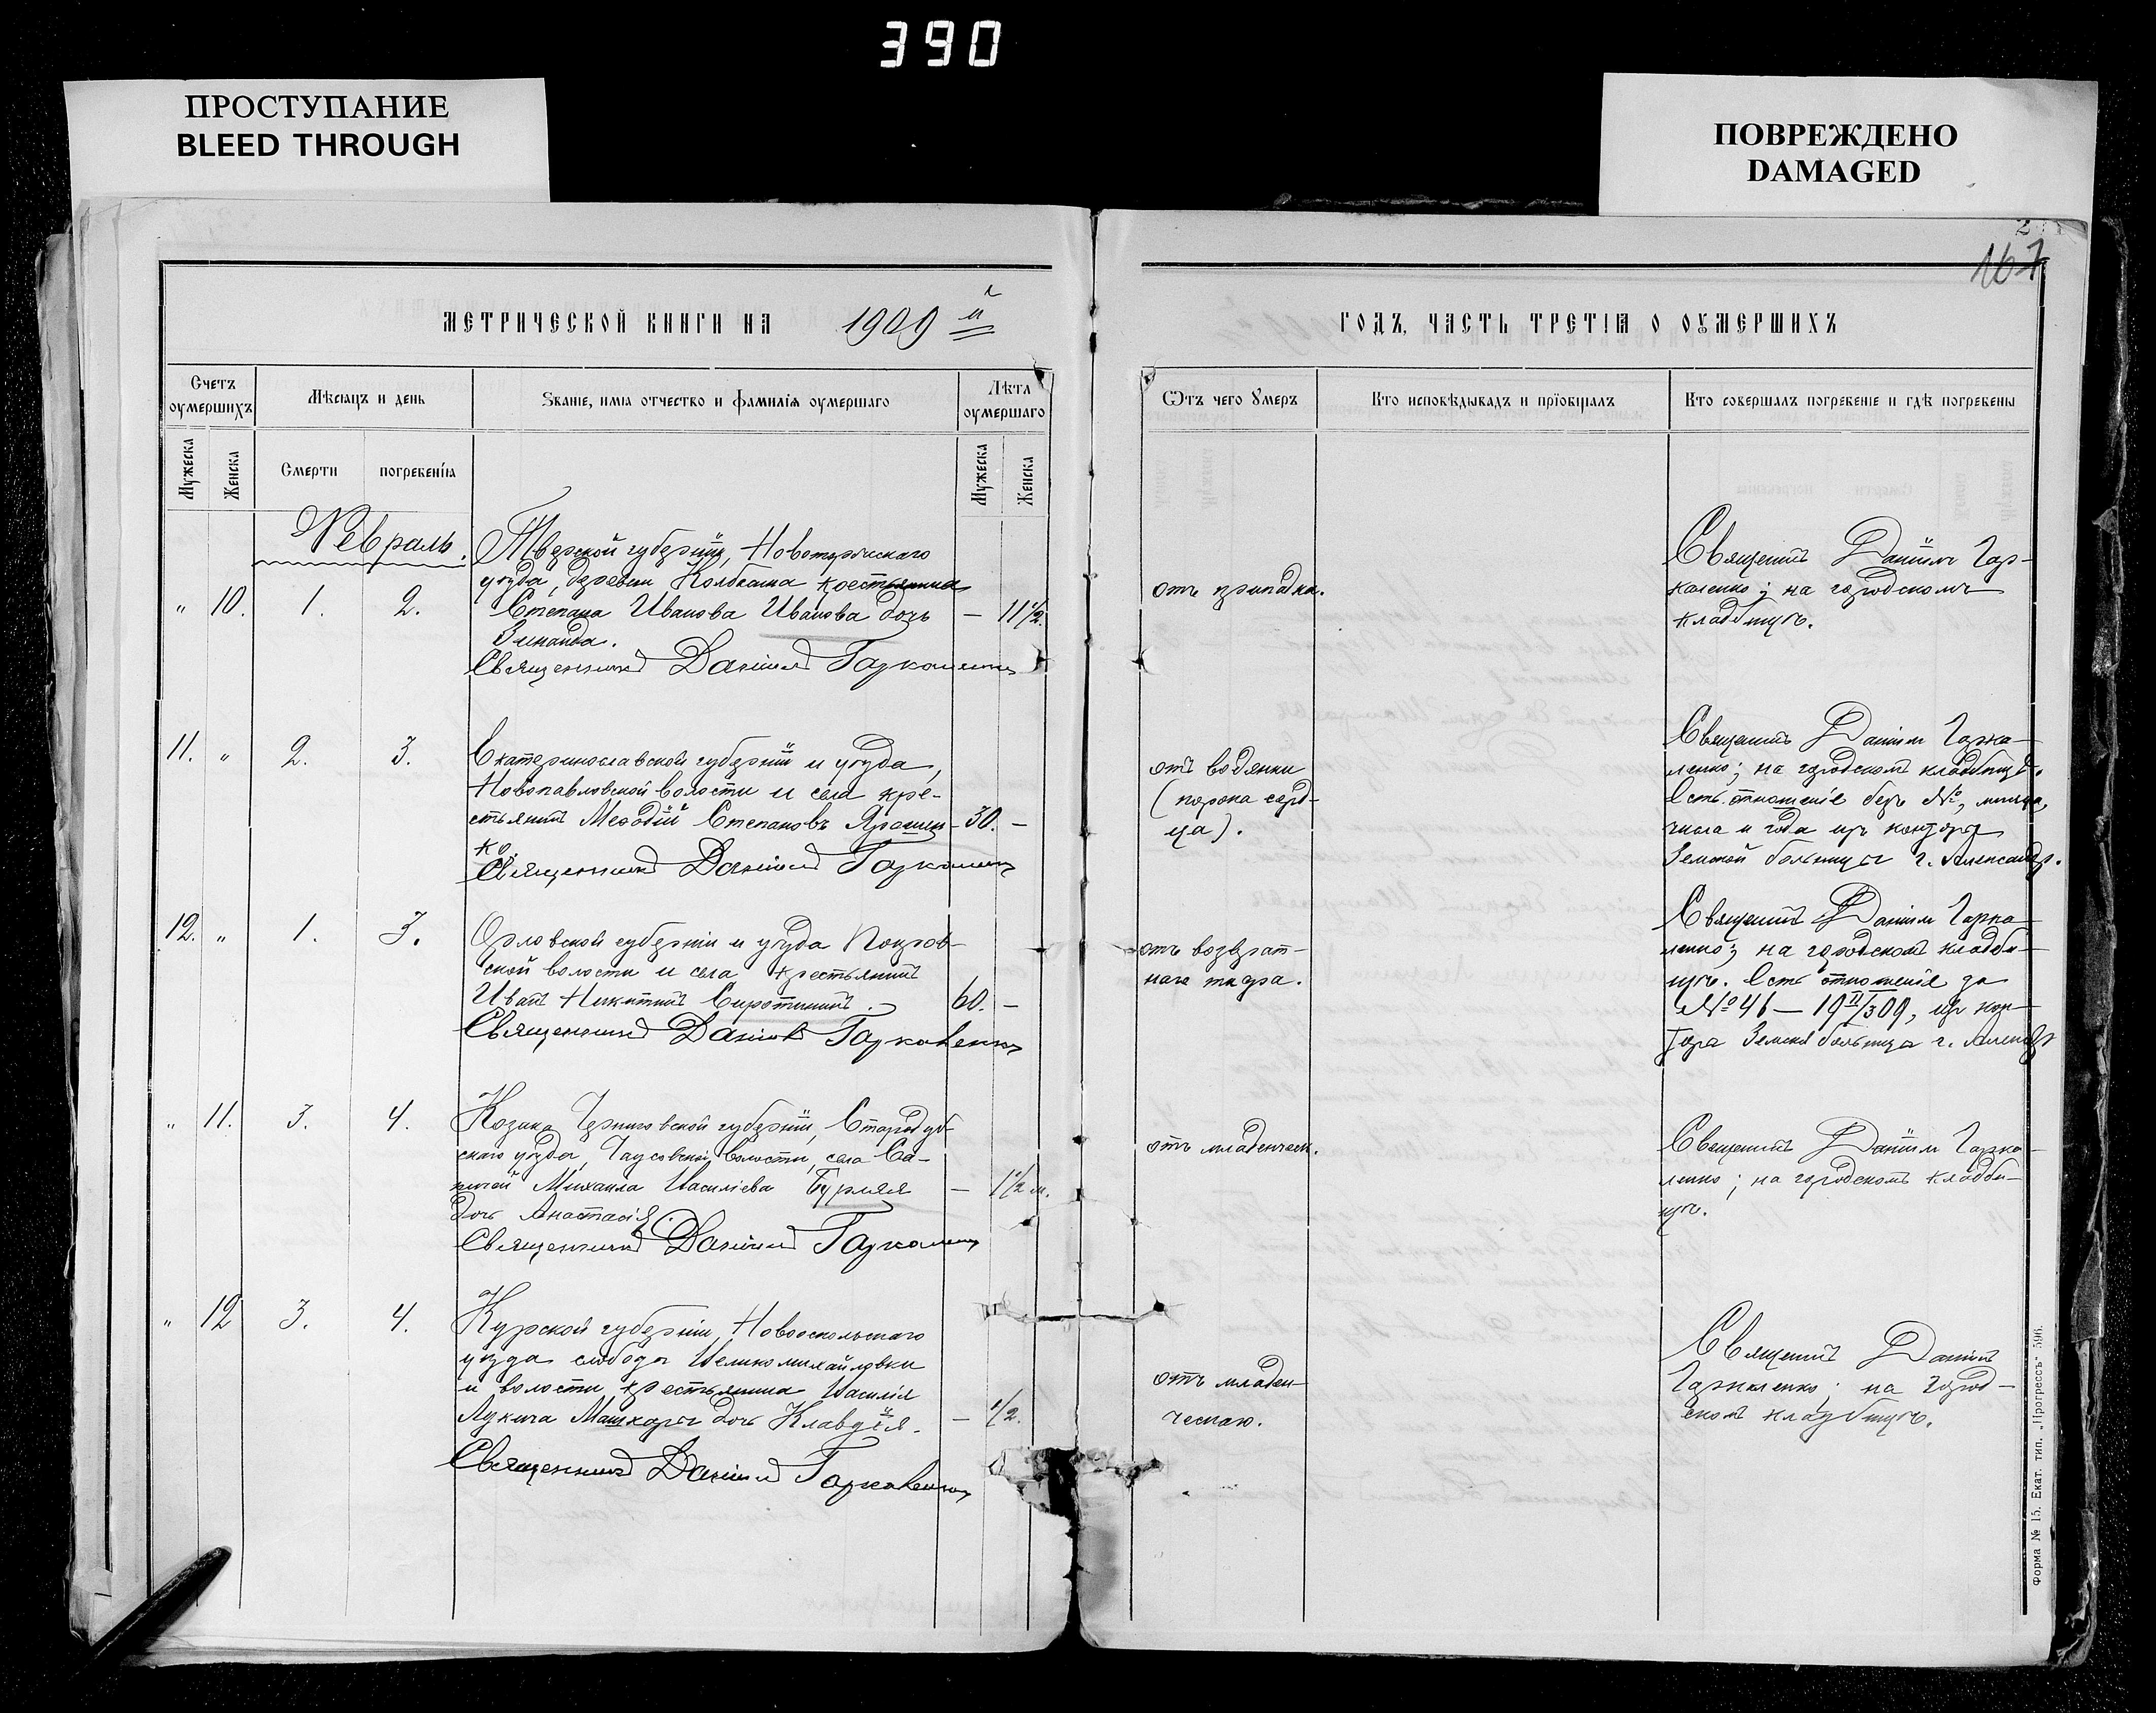 390
ПРОСТУПАНИЕ
BLEED THROUGH
ПОВРЕЖДЕНО
DAMAGED
167
МЕТРИЧЕСКОЙ КНИГИ НА 1909 й
ГОДЪ, ЧАСТЬ ТРЕТІѦ О ОУМЕРШИХЪ
Счетъ оумершихъ
Мѣсѧцъ и день
Званіе, имѧ отчество и фамиліѧ оумершаго
Лѣта оумершаго
Ѿтъ чего Умеръ
Кто исповѣдывадъ и прїобщалъ
Кто совершалъ погребеніе и гдѣ погребены
Мужеска
Женска
Смерти
погребеніѧ
Мужеска
Женска
Февраль.
Тверской губерніи, Новоторжскаго
уѣзда, деревни крестьянина
" 10. 1. 2. Степана Иванова Иванова дочь — 11 1/2.
Зинаида.
Священникъ Даніилъ Гаркаленко
отъ припадка.
Священникъ Даніилъ Гар-
каленко; на городскомъ
кладбищѣ.
11. " 2. 3. Екатеринославской губерніи и уѣзда,
Новопавловской волости и села кре-
стьянинъ Меѳодій Степановъ Ярошен- 30. —
ко.
Священникъ Даніилъ Гаркаленко
отъ водянки
(порока серд-
ца).
Священникъ Даніилъ Гарка-
ленко; на городскомъ кладбищѣ.
Есть отношеніе безъ №, мѣсяца,
числа и года изъ конторы
Земской больницы г. Александр.
12. " 1. 3. Орловской губерніи и уѣзда Покров-
ской волости и села крестьянинъ
Иванъ Никитинъ Сиротининъ. 60. —
Священникъ Даніилъ Гаркаленко
отъ возврат-
наго тифа.
Священникъ Даніилъ Гарка-
ленко; на городскомъ кладби-
щѣ. Есть отношеніе за
№ 46 — 19 II/3 09, изъ кон-
торы Земской больницы г. Александр
" 11. 3. 4. Козака Черниговской губерніи, Стародуб-
скаго уѣзда, волости, села
Михаила Васильева Бурляя — 1 1/2 м.
дочь Анастасія.
Священникъ Даніилъ Гаркаленко
отъ младенческ.
Священникъ Даніилъ Гарка-
ленко; на городскомъ кладби-
щѣ.
" 12 3. 4. Курской губерніи, Новооскольскаго
уѣзда слободы Великомихайловки
и волости крестьянина Василія
Лукича Машкары дочь Клавдія. — 1/2.
Священникъ Даніилъ Гаркаленко
отъ младен-
ческаго.
Священникъ Даніилъ
Гаркаленко; на город-
скомъ кладбищѣ.
Форма № 15. Екат. тип. „Прогрессъ" 596.